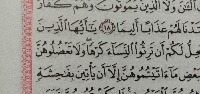 ٱلْـَٰٔنَ وَلَا ٱلَّذِينَ يَمُوتُونَ وَهُمْ كُفَّارٌ
أَعْتَدْنَا لَهُمْ عَذَابًا أَلِيمًا ١٨ يَٰٓأَيُّهَا ٱلَّذِينَ
يَحِلُّ لَكُمْ أَن تَرِثُوا۟ ٱلنِّسَآءَ كَرْهًا وَلَا تَعْضُلُوهُنَّ
بِبَعْضِ مَآ ءَاتَيْتُمُوهُنَّ إِلَّآ أَن يَأْتِينَ بِفَٰحِشَةٍ